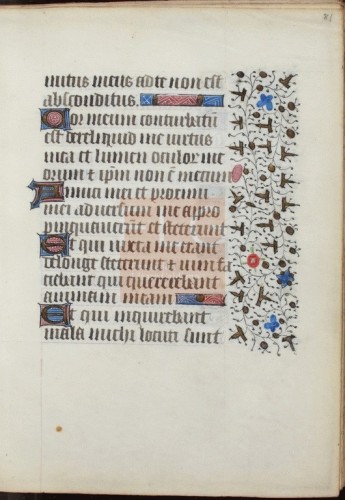 81
mitus meus ad te non est
absconditus.
Cor meum conturbatũ
est dereliquid me virtus
mea et lumen oculor me
orum et ip̃m non ẽ mecum
Amici mei et proximi
mei adversum me appro
pinquaverũt et steterunt
Et qui iuxta me erant
de longe steterunt et vim fa
ciebant qui querebant
animam meam
Et qui inquirebant
mala michi locuti sunt